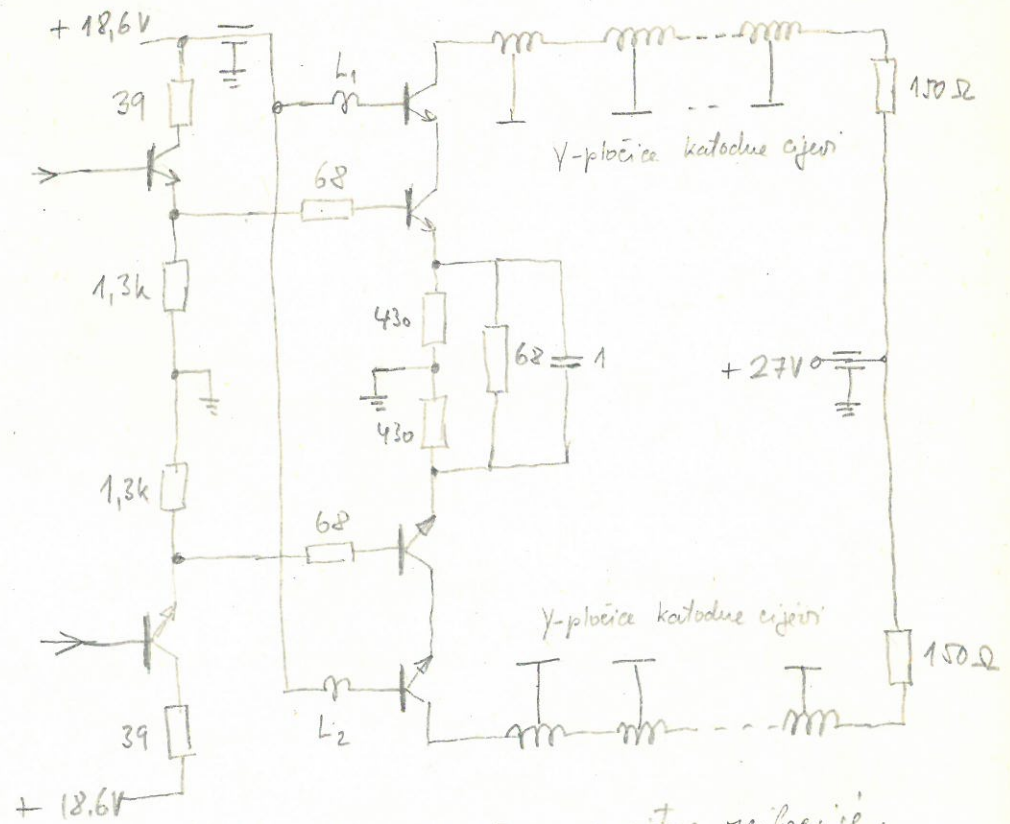 + 18,6V
39
L1
150 Ω
Y-pločice katodne cijevi
68
1,3k
430
68
1
+ 27V
430
1,3k
68
Y-pločice katodne cijevi
150 Ω
39
L2
+ 18.6V